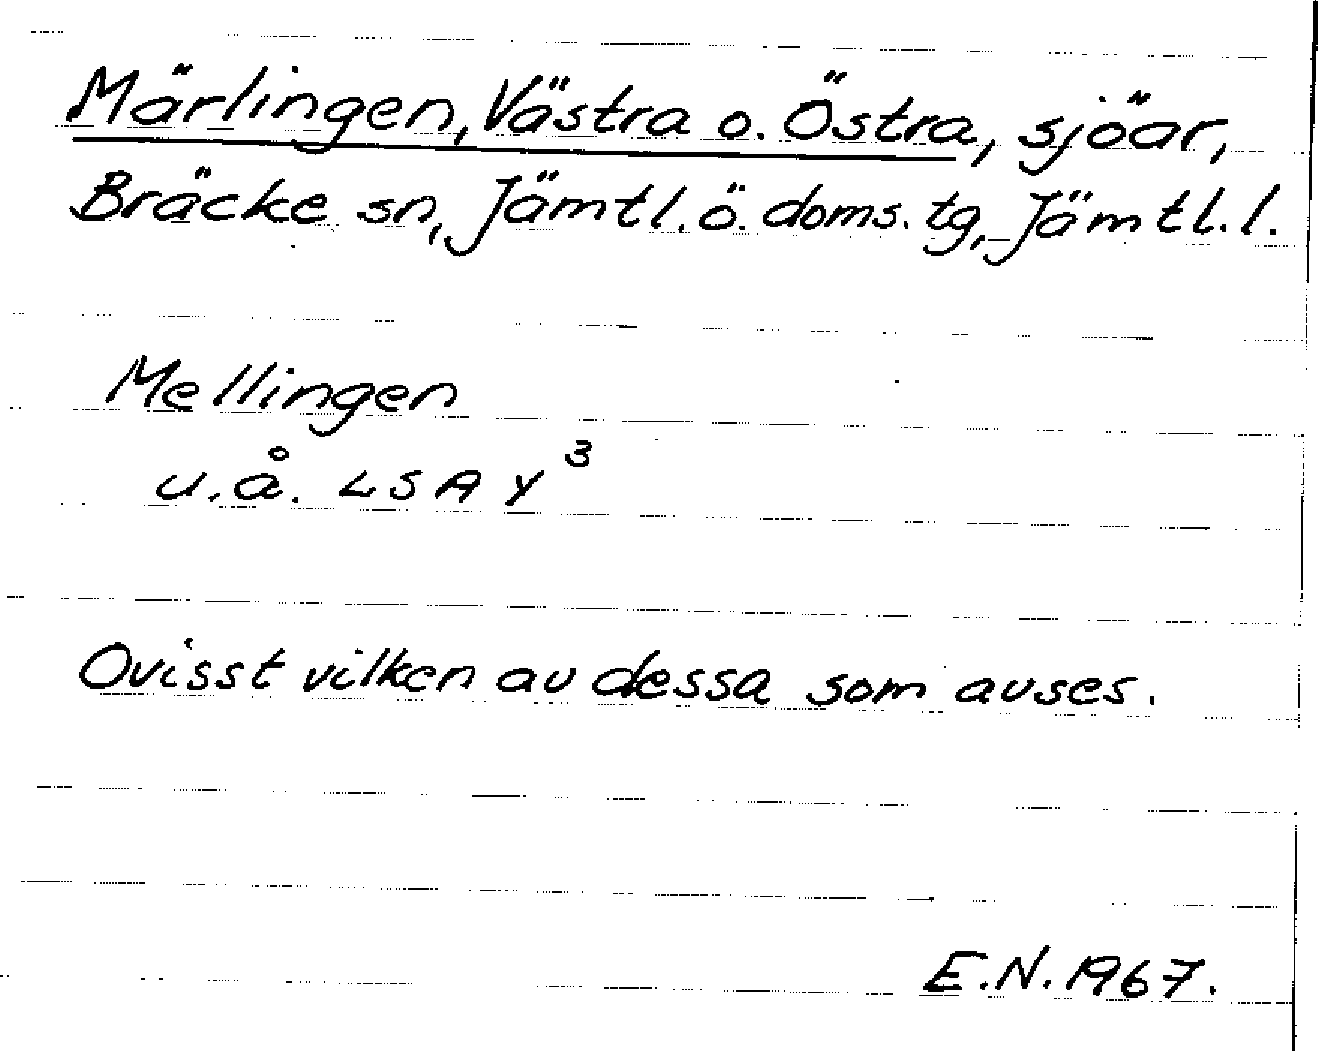 Märlingen, Västra o. Östra, sjöar,
Bräcke sn, Jämtl. ö. doms. tg, Jämtl. l.
Mellingen
u.å. LSA Y³
Ovisst vilken av dessa som avses.
E.N. 1967.